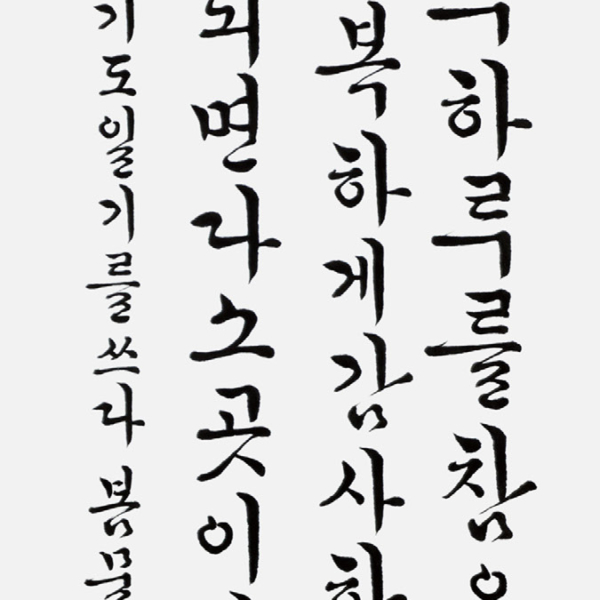 하루를참
복하게감사하
되면다소곳이
기도일기를쓰다 봄